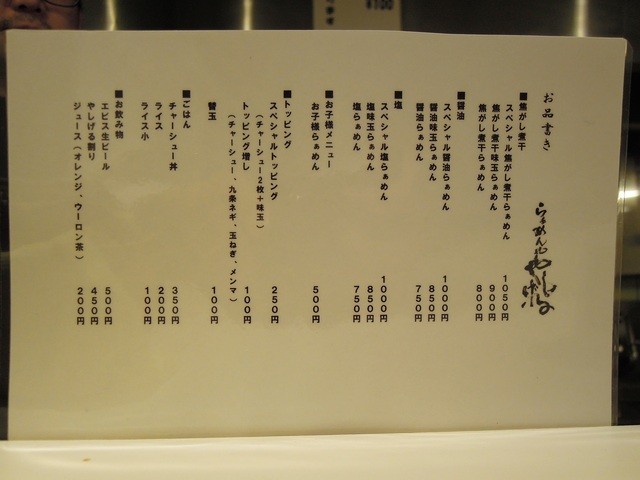 お品書き
らぁめん
■焦がし煮干
スペシャル焦がし煮干らぁめん 1050円
焦がし煮干味玉らぁめん 900円
焦がし煮干らぁめん 800円
■醤油
スペシャル醤油らぁめん 1000円
醤油味玉らぁめん 850円
醤油らぁめん 750円
■塩
スペシャル塩らぁめん 1000円
塩味玉らぁめん 850円
塩らぁめん 750円
■お子様メニュー
お子様らぁめん 500円
■トッピング
スペシャルトッピング 250円
（チャーシュー2枚＋味玉）
トッピング増し 100円
（チャーシュー、九条ネギ、玉ねぎ、メンマ）
替玉 100円
■ごはん
チャーシュー丼 350円
ライス 200円
ライス小 100円
■お飲み物
エビス生ビール 500円
やしげる割り 450円
ジュース（オレンジ、ウーロン茶） 200円
¥100